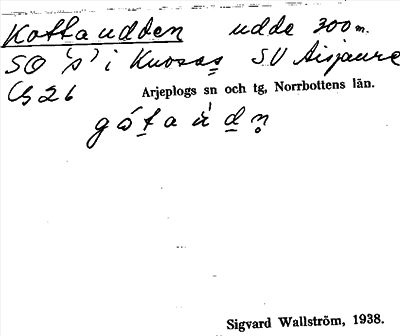 Kottaudden udde 300 m.
SO "s" i Kuosas S.V Aisjaure
Cg 26 Arjeplogs sn och tg, Norrbottens län.
gótaùdn̥
Sigvard Wallström, 1938.